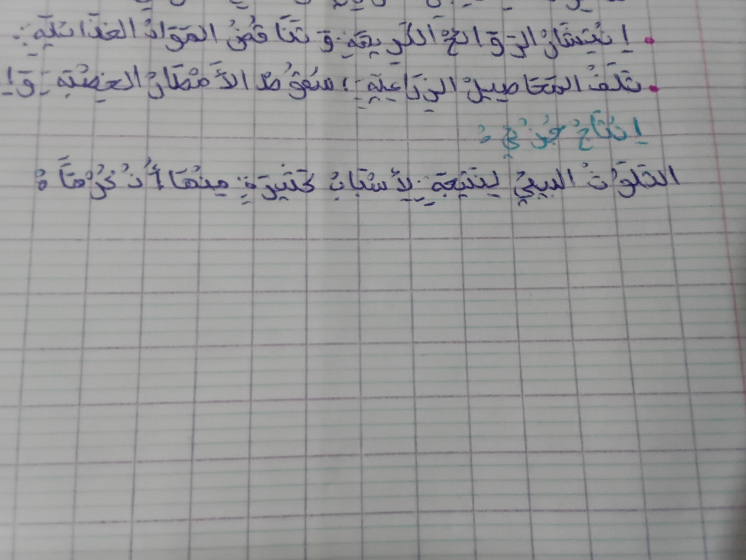 . إِنْتِشَارُ الرَّوَائِحِ الكَرِيهَةِ وَ تَنَاقُصُ المَوَادِ الغِذَائِيَّةِ.
. تَلَفُ المَحَاصِيلِ الزِّرَاعِيَّةِ، سُقُوطُ الأَمْطَارِ الحِمْضِيَّةِ وَإِ
إِنْتَاجُ جُزْئِي :
التَلَوُثُ البِيئِيُ نَتِيجَةٌ لِأَسْبَابٍ كَثِيرَةٍ مِنْهَا أَذْكُرُ مَا :